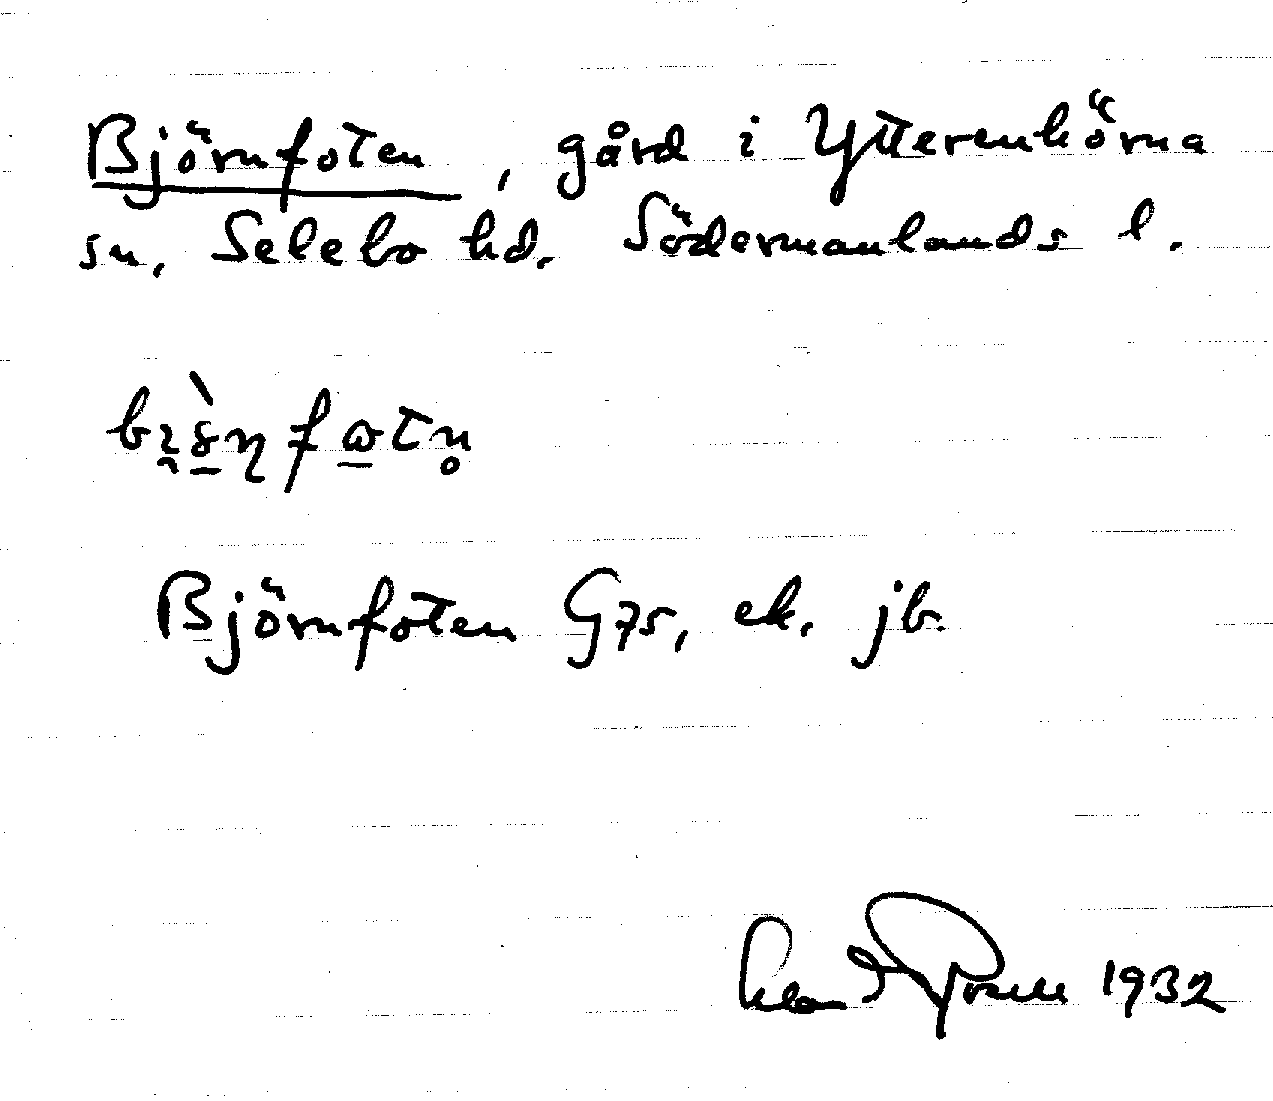 Björnfoten, gård i Ytterenhörna
sn, Selebo hd. Södermanlands l.
Björnfoten G75, ek. jb.
1932